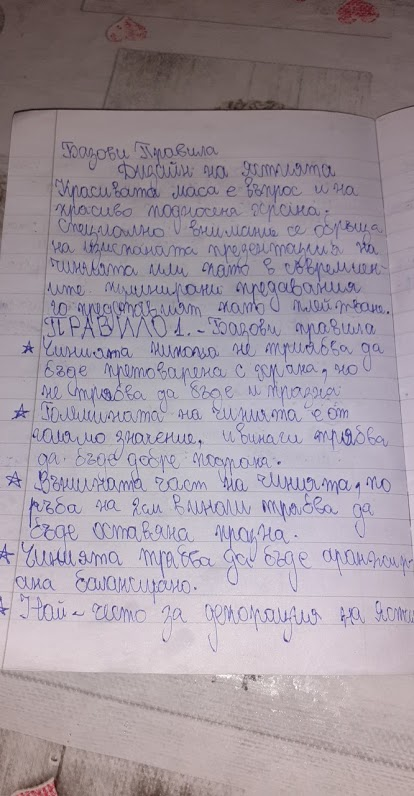 Базови Правила
Дизайн на Ястията
Красивата маса е въпрос и на
красиво поднесена храна.
Специално внимание се обръща
на изисканата презентация на
чинията или като в съвремен-
ните кулинарни предавания
го представят като плейтване.
ПРАВИЛО 1. - Базови правила
★ Чинията никога не трябва да
бъде претоварена с храна, но
не трябва да бъде и празна
★ Големината на чинията е от
голямо значение, и винаги трябва
да бъде добре подбрана.
★ Външната част на чинията, по
ръба на він винаги трябва да
бъде оставяна празна.
★ Чинията трябва да бъде аранжир-
ана балансирано.
★ Най-често за декорация на ясти